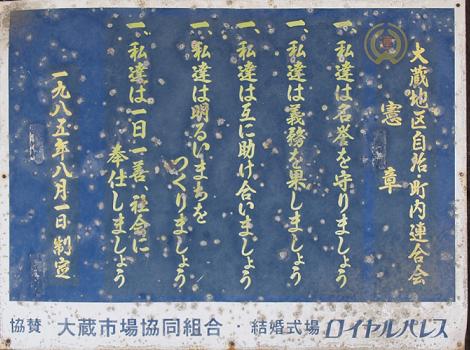 大蔵地区自治町内連合会
憲章
一、私達は名誉を守りましょう
一、私達は義務を果しましょう
一、私達は互に助け合いましょう
一、私達は明るいまちを
つくりましょう
一、私達は一日一善、社会に
奉仕しましょう
一九八五年八月一日制定
協賛 大蔵市場協同組合・結婚式場 ロイヤルパレス